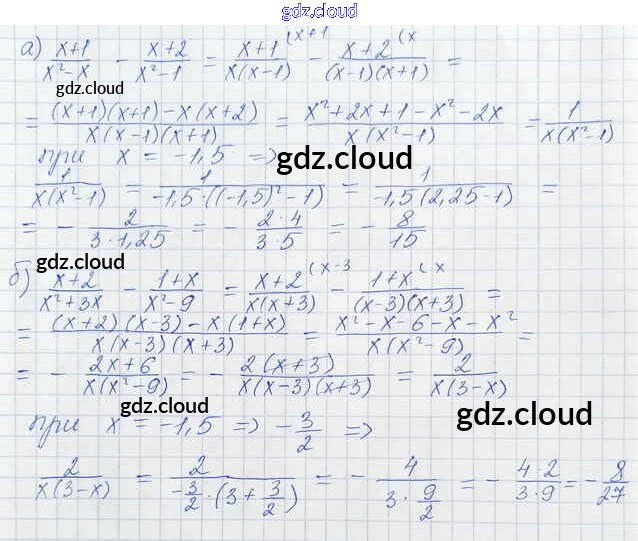 gdz.cloud
а) (x+1)/(x²-x) - (x+2)/(x²-1) = (x+1)/(x(x-1)) (x+1 - (x+2)/((x-1)(x+1)) (x =
gdz.cloud
= ((x+1)(x+1)-x(x+2))/(x(x-1)(x+1)) = (x²+2x+1-x²-2x)/(x(x²-1)) = 1/(x(x²-1))
при x = -1,5 =>
gdz.cloud
1/(x(x²-1)) = 1/(-1,5·((-1,5)²-1)) = 1/(-1,5(2,25-1)) =
= - 2/(3·1,25) = - (2·4)/(3·5) = - 8/15
gdz.cloud
б) (x+2)/(x²+3x) - (1+x)/(x²-9) = (x+2)/(x(x+3)) (x-3 - (1+x)/((x-3)(x+3)) (x =
= ((x+2)(x-3)-x(1+x))/(x(x-3)(x+3)) = (x²-x-6-x-x²)/(x(x²-9)) =
= - (2x+6)/(x(x²-9)) = - (2(x+3))/(x(x-3)(x+3)) = 2/(x(3-x))
gdz.cloud
gdz.cloud
при x = -1,5 => - 3/2 =>
2/(x(3-x)) = 2/(-3/2·(3+3/2)) = - 4/(3·9/2) = - (4·2)/(3·9) = - 8/27
gdz.cloud